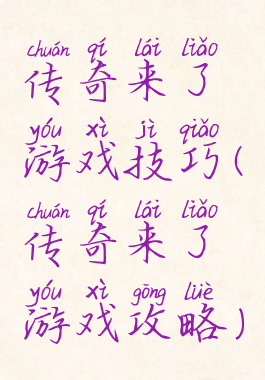 chuán qí lái liǎo
传奇来了
yóu xì jì qiǎo
游戏技巧(
chuán qí lái liǎo
传奇来了
yóu xì gōng lüè
游戏攻略)